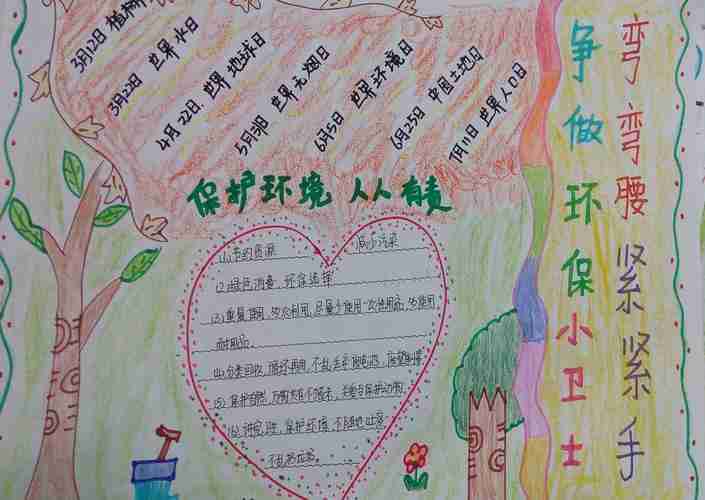 3月12日 植树
3月22日 世界水日
4月22日 世界地球日
5月31日 世界无烟日
6月5日 世界环境日
6月25日 中国土地日
7月11日 世界人口日
保护环境 人人有责
(1)节约资源 减少污染
(2)绿色消费,环保选择
(3)重复使用,多次利用,尽量少使用一次性用品,多使用
耐用品。
(4)分类回收,循环再用,不乱丢弃
(5)保护自然,万物共存
(6)讲究卫生,保护环境,不随地吐痰
不乱扔垃圾。
争做环保小卫士
弯弯腰紧紧手